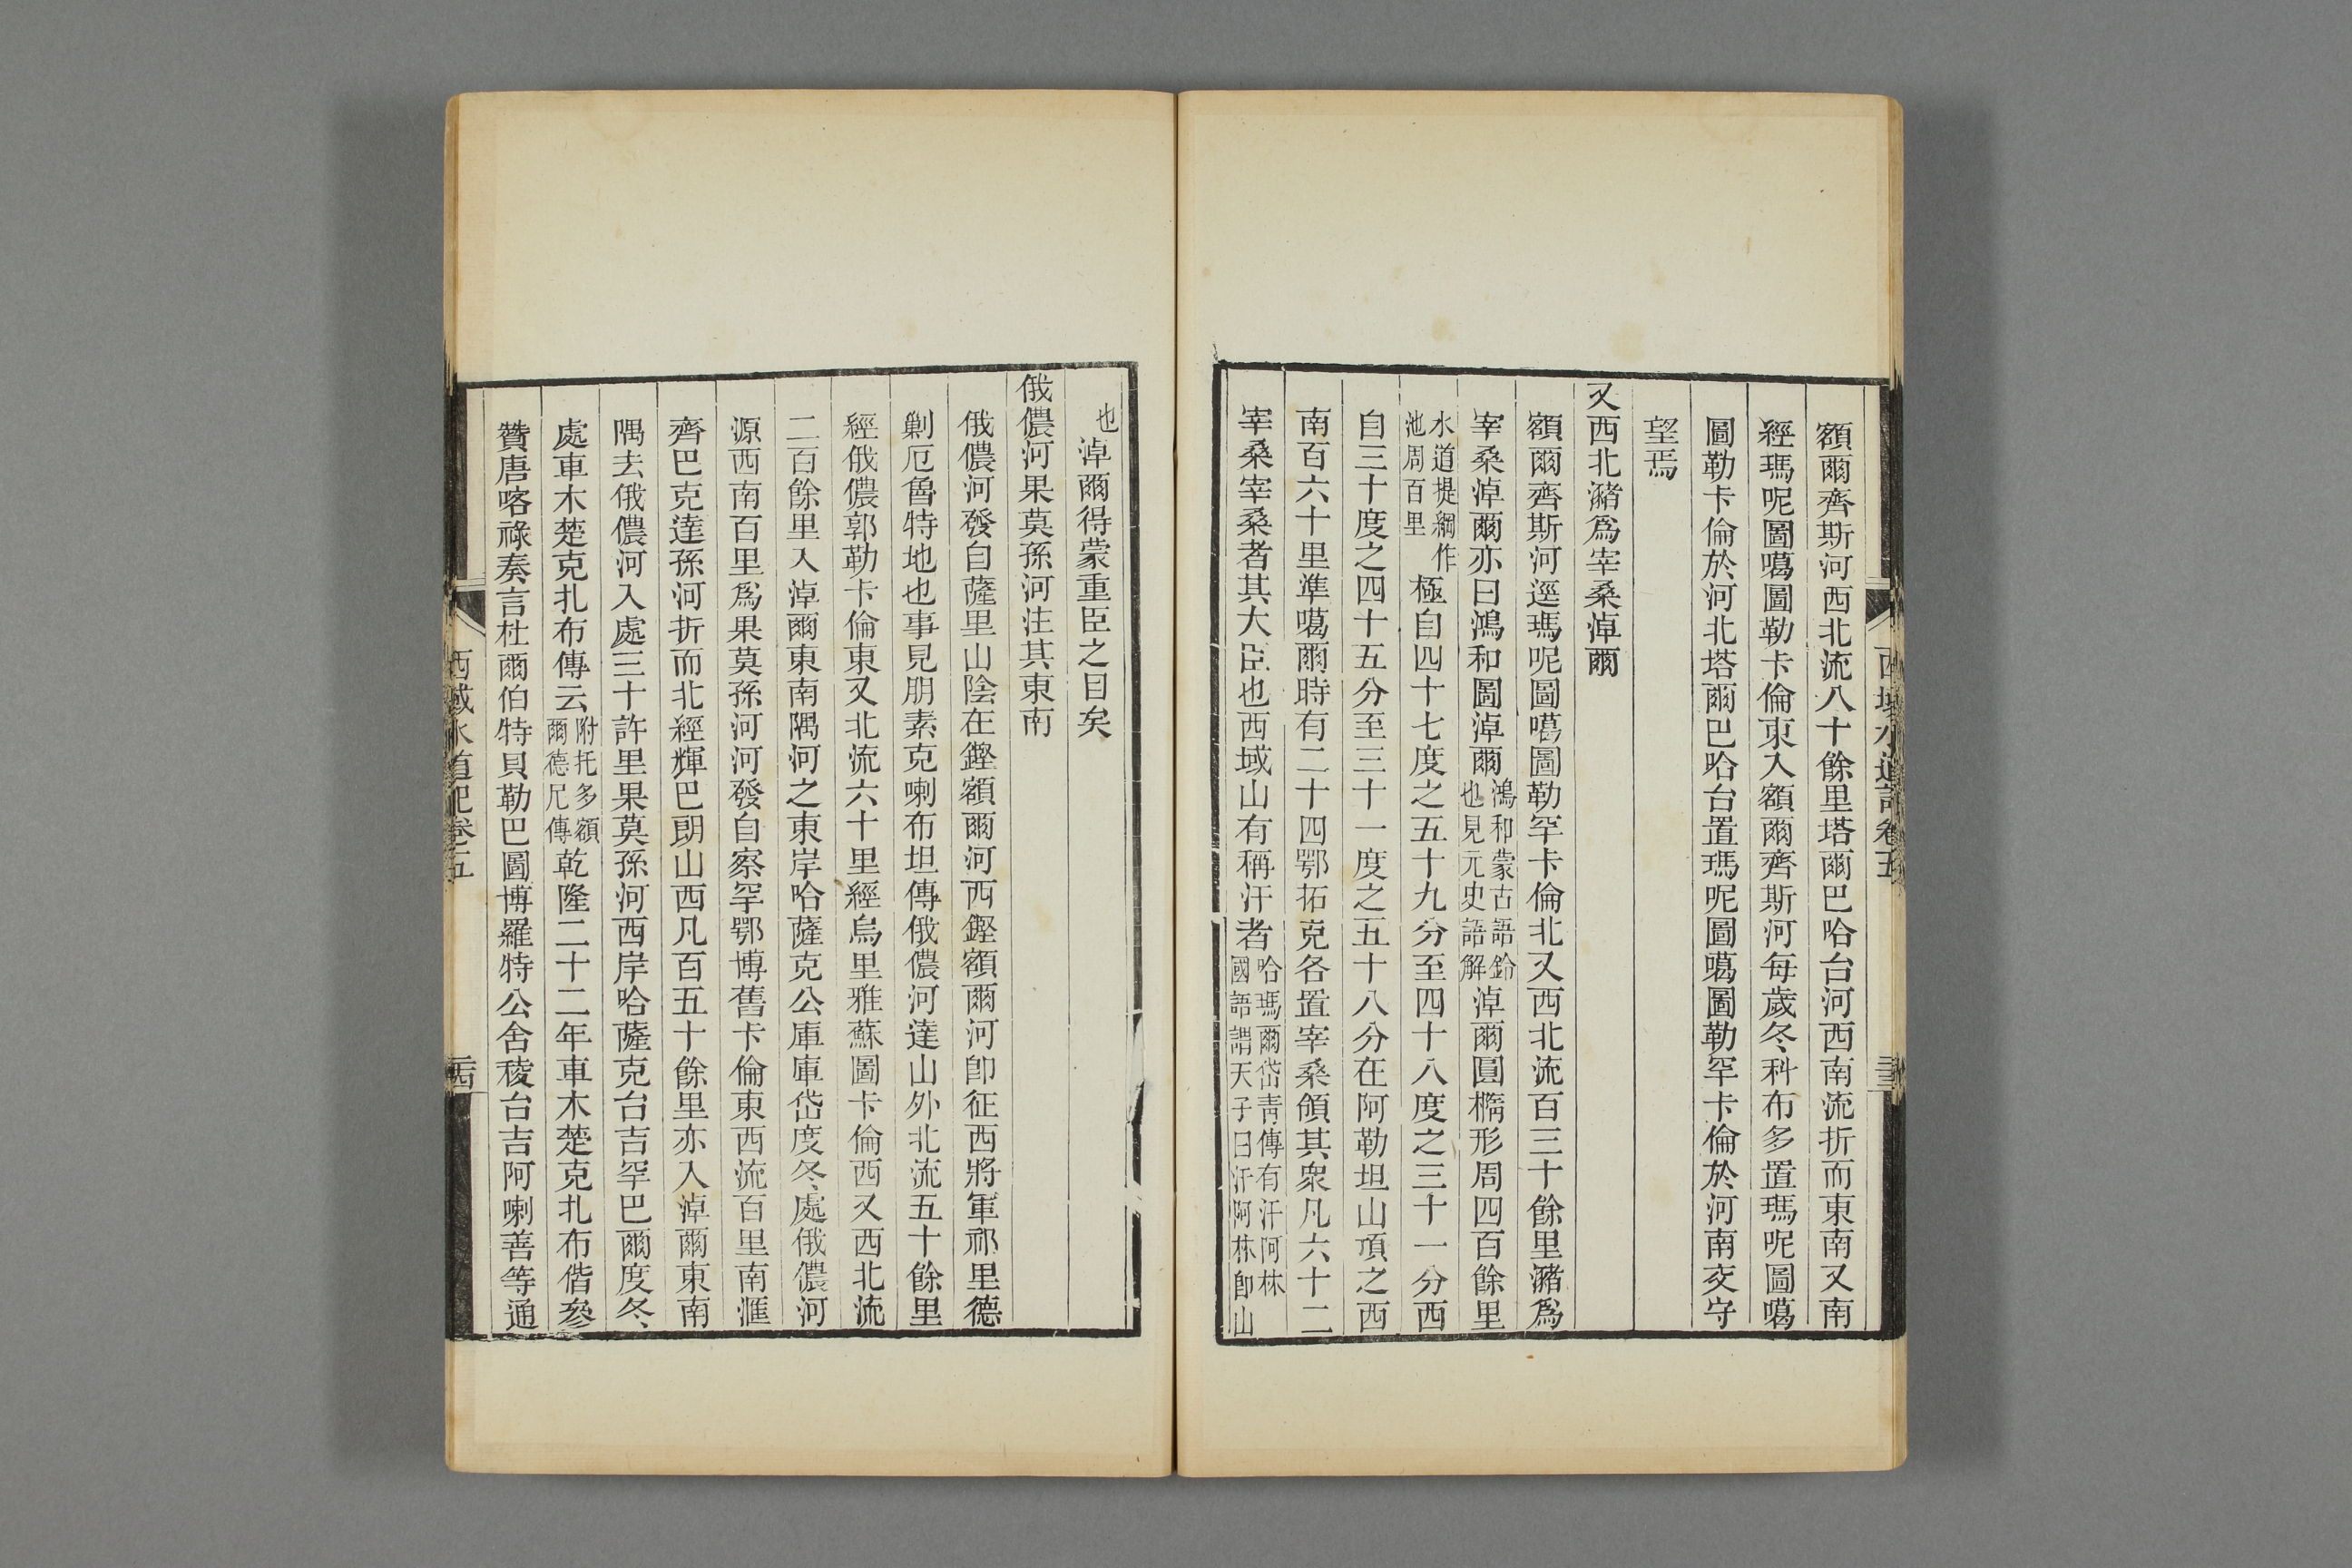 額爾齊斯河西北流八十餘里塔爾巴哈台河西南流折而東南又南
經瑪呢圖噶圖勒卡倫東入額爾齊斯河每歲冬科布多置瑪呢圖噶
圖勒卡倫於河北塔爾巴哈台置瑪呢圖噶圖勒罕卡倫於河南交守
望焉
又西北瀦爲宰桑淖爾
額爾齊斯河逕瑪呢圖噶圖勒罕卡倫北又西北流百三十餘里瀦爲
宰桑淖爾亦曰鴻和圖淖爾鴻和蒙古語鈴也見元史語解淖爾圓橢形周四百餘里
水道提綱作池周百里極自四十七度之五十九分至四十八度之三十一分西
自三十度之四十五分至三十一度之五十八分在阿勒坦山頂之西
南百六十里準噶爾時有二十四鄂拓克各置宰桑領其衆凡六十二
宰桑宰桑者其大臣也西域山有稱汗者哈瑪爾岱青傳有汗阿林國語謂天子曰汗阿林卽山
西域水道記卷五
二三
也淖爾得蒙重臣之目矣
俄儂河果莫孫河注其東南
俄儂河發自薩里山陰在鏗額爾河西鏗額爾河卽征西將軍祁里德
剿厄魯特地也事見朋素克喇布坦傳俄儂河達山外北流五十餘里
經俄儂郭勒卡倫東又北流六十里經烏里雅蘇圖卡倫西又西北流
二百餘里入淖爾東南隅河之東岸哈薩克公庫庫岱度冬處俄儂河
源西南百里爲果莫孫河河發自察罕鄂博舊卡倫東西流百里南滙
齊巴克達孫河折而北經輝巴朗山西凡百五十餘里亦入淖爾東南
隅去俄儂河入處三十許里果莫孫河西岸哈薩克台吉罕巴爾度冬
處車木楚克扎布傳云附托多額爾德尼傳乾隆二十二年車木楚克扎布偕參
贊唐喀祿奏言杜爾伯特貝勒巴圖博羅特公舍稜台吉阿喇善等通
西域水道記卷五
二四